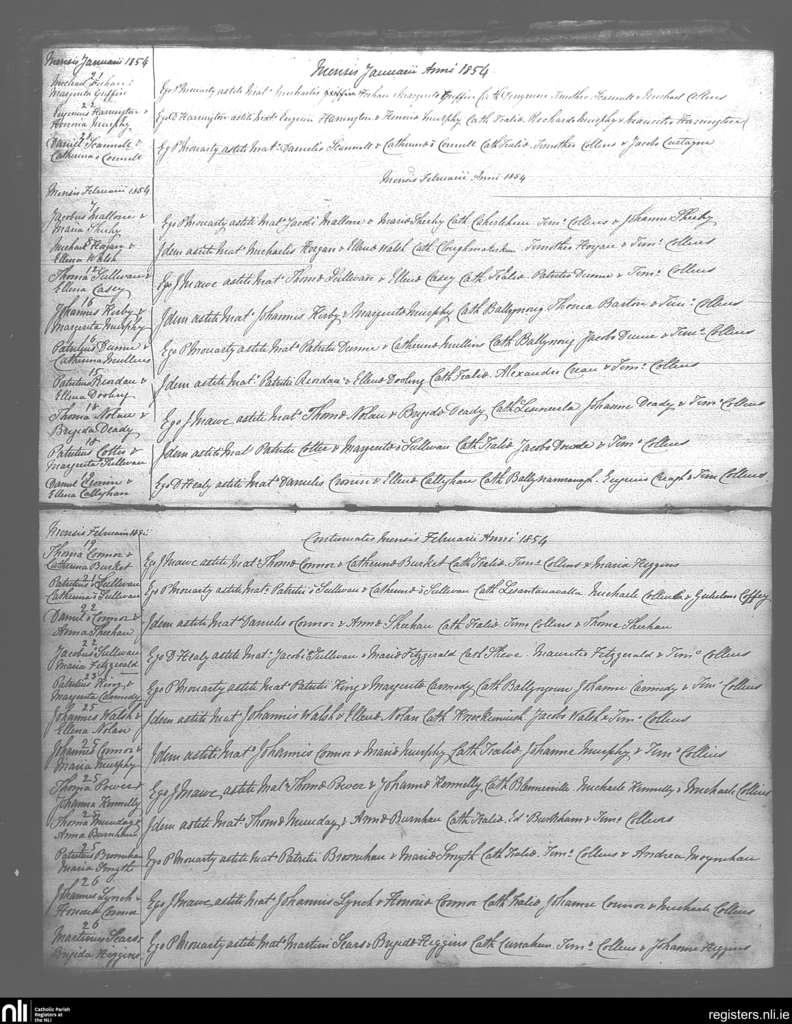 Mensis Januarii 1854
Mensis Januarii Anni 1854
21
Michael &
Margerita Griffin
Ego P Moriarty astiti Mat° Michaelis & Margerita Griffin Timotheo Scannell & Michaele Collins
22
Eugenius Harrington &
Honoria Murphy
Ego D Harington astiti Mat° Eugenii Harington & Honoria Murphy Cath Tralió. Richardo Murphy & Harrington
Daniel Scannell &
Catherina Connell
Ego P Moriarty astiti Mat° Danielis Scannell & Catherina Connell Cath Tralió. Timotheo Collins & Jacobo
Mensis Februarii Anni 1854
Mensis Februarii 1854
7
Jacobus Mallone &
Maria Sheehy
Ego P Moriarty astiti Mat° Jacobi Mallone & Maria Sheehy Cath Tim° Collins & Johanne Sheehy
Michael Hogan &
Ellena Walsh
Idem astiti Mat° Michaelis Hogan & Ellena Walsh Cath Timotheo Hogan & Tim° Collins
12
Thoma Sullivan &
Ellena Casey
Ego J Mawe astiti Mat° Thoma Sullivan & Ellena Casey Cath Tralió. Patritio Dunne & Tim° Collins
16
Johannes Kirby &
Margerita Murphy
Idem astiti Mat° Johannis Kirby & Margerita Murphy Cath Thoma Barton & Tim° Collins
Patritius Dunne &
Catherina Mullins
Ego P Moriarty astiti Mat° Patritii Dunne & Catherina Mullins Cath Jacobo Dunne & Tim° Collins
Patritius &
Ellena Dooling
Idem astiti Mat° Patritii & Ellena Dooling Cath Tralió. Alexander Crean & Tim° Collins
18
Thoma Nolan &
Brigida Deady
Ego J Mawe astiti Mat° Thoma Nolan & Brigida Deady Cath Johanne Deady & Tim° Collins
Patritius Cotter &
Margerita Sullivan
Idem astiti Mat° Patritii Cotter & Margerita Sullivan Cath Tralió Jacobo & Tim° Collins
19
Daniel Cronin &
Ellena Callaghan
Ego D Healy astiti Mat° Danielis Cronin & Ellena Callaghan Cath Eugenio Creagh & Tim Collins
Mensis Februarii 1854
Continuatio Mensis Februarii Anni 1854
19
Thoma Connor &
Catherina Burket
Ego J Mawe astiti Mat° Thoma Connor & Catherina Burket Cath Tralió. Tim° Collins & Maria Higgins
21
Patritius Sullivan
Catherina Sullivan
Ego P Moriarty astiti Mat° Patritii o Sullivan & Catherina o Sullivan Cath Michaele & Gulielmo Coffey
22
Daniel o Connor &
Anna Sheehan
Idem astiti Mat° Danielis o Connor & Anna Sheehan Cath Tralió. Tim° Collins & Thoma Sheehan
22
Jacobus Sullivan
Maria Fitzgerald
Ego D Healy astiti Mat° Jacobi Sullivan & Maria Fitzgerald Mauritio Fitzgerald & Tim° Collins
23
Patritius King &
Margerita Carmody
Ego P Moriarty astiti Mat° Patritii King & Margerita Carmody Cath Johanne Carmody & Tim° Collins
25
Johannes Walsh &
Ellena Nolan
Idem astiti Mat° Johannis Walsh & Ellena Nolan Cath Jacobo Walsh & Tim° Collins
25
Johannes Connor &
Maria Murphy
Idem astiti Mat° Johannis Connor & Maria Murphy Cath Tralió Johanne Murphy & Tim° Collins
25
Thoma Power &
Johanna Kennelly
Ego J Mawe astiti Mat° Thoma Power & Johanna Kennelly Cath Blennerville. Michaele Kennelly & Michaele Collins
25
Thoma Munday &
Anna Burnham
Idem astiti Mat° Thoma Munday & Anna Burnham Cath Tralió. Ed° Burnham & Tim° Collins
25
Patritius Brosnihan
Maria Smyth
Ego P Moriarty astiti Mat° Patritii Brosnihan & Maria Smyth Cath Tralió. Tim° Collins & Andrea Moynihan
26
Johannes Lynch &
Honoria Connor
Ego J Mawe astiti Mat° Johannis Lynch & Honoria Connor Cath Tralió Johanne Connor & Michaele Collins
26
Martinus Sears
Brigida Higgins
Ego P Moriarty astiti Mat° Martini Sears & Brigida Higgins Cath Currahun. Tim° Collins & Johanne Higgins
nli
Catholic Parish
Registers at
the NLI
registers.nli.ie